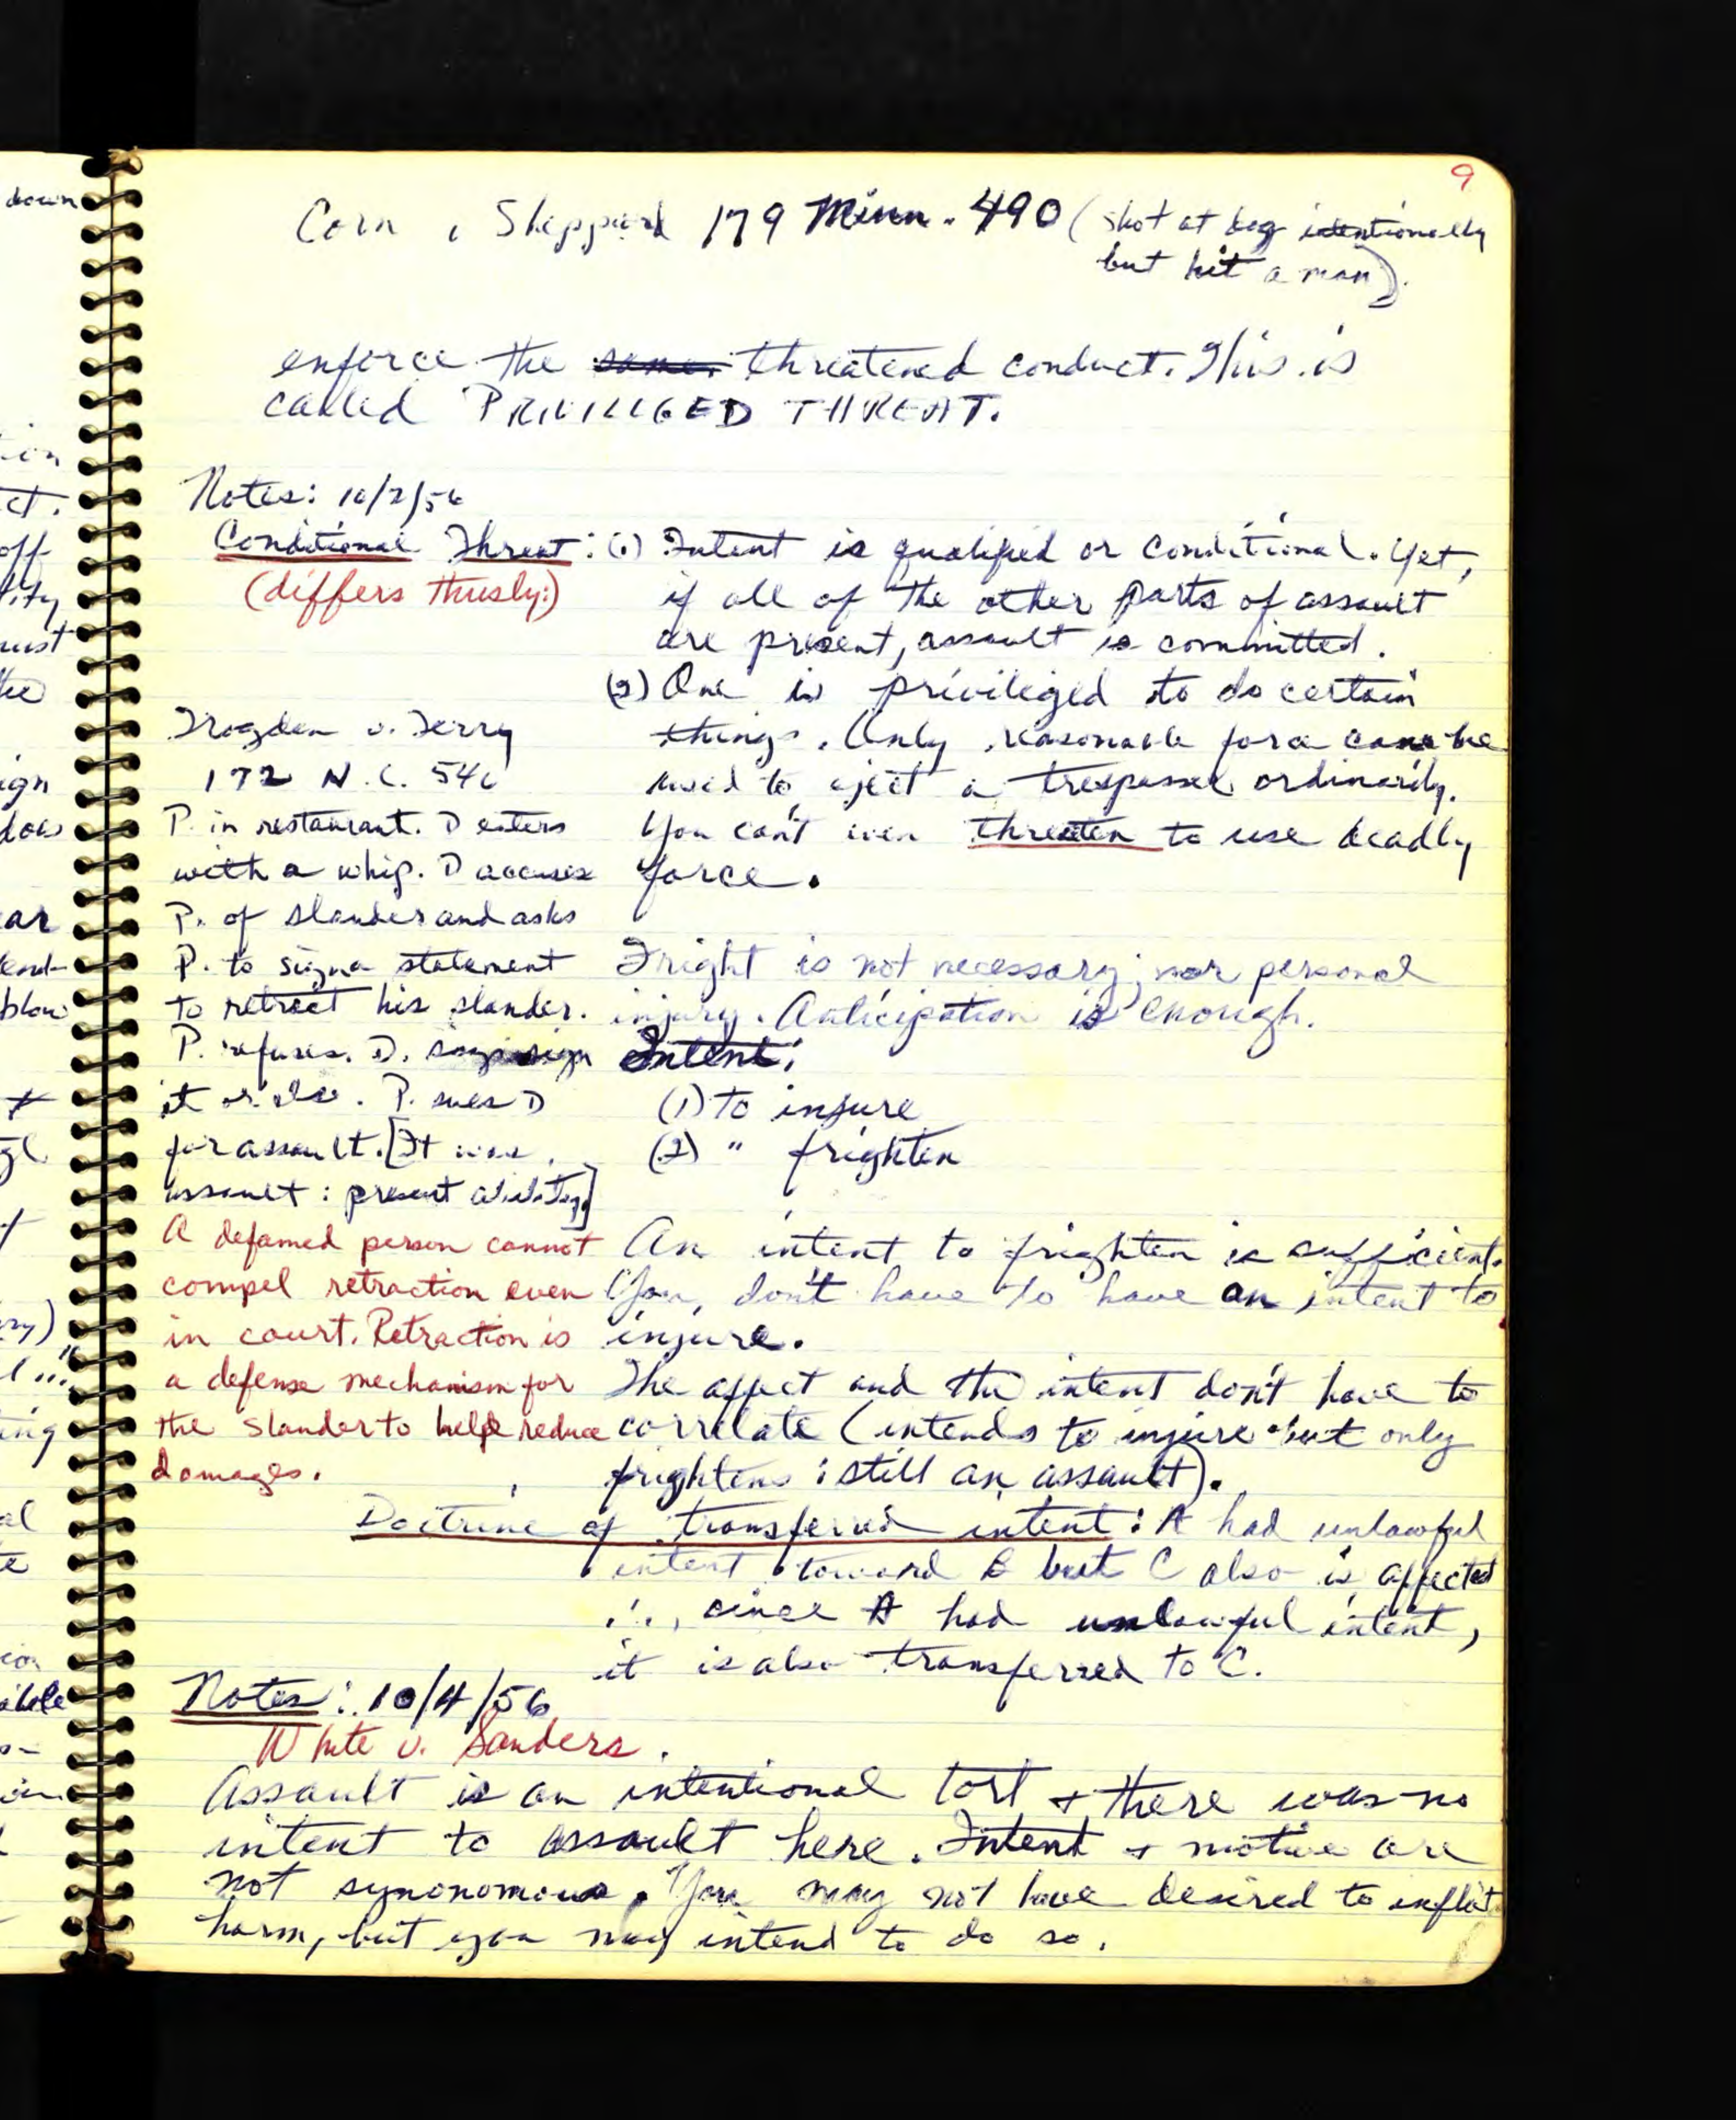 9
Corn v. Sheppard 179 Minn. 490 (shot at dog intentionally
but hit a man).
enforce the same. threatened conduct. This is
called PRIVILIGED THREAT.
Notes: 10/2/56
Conditional Threat: (1) Intent is qualified or conditional. Yet,
(differs thusly:)
if all of the other parts of assault
are present, assault is committed.
(2) One is priviliged to do certain
things. Only reasonable force can be
used to eject a trespasser ordinarily.
You can't even threaten to use deadly
force.
Trogden v. Terry
172 N.C. 540
P. in restaurant. D enters
with a whip. D accuses
P. of slander and asks
P. to sign a statement
to retract his slander.
P. refuses. D. says sign
it or else. P. sues D
for assault. [It was
assault: present ability.]
A defamed person cannot
compel retraction even
in court. Retraction is
a defense mechanism for
the slander to help reduce
damages.
Fright is not necessary; nor personal
injury. Anticipation is enough.
Intent:
(1) to injure
(2) " frighten
An intent to frighten is sufficient.
You don't have to have an intent to
injure.
The affect and the intent don't have to
correlate (intends to injure but only
frightens: still an assault).
Doctrine of transferred intent: A had unlawful
intent toward B but C also is affected
∴, since A had unlawful intent,
it is also transferred to C.
Notes: 10/4/56
White v. Sanders.
Assault is an intentional tort + there was no
intent to assault here. Intent + motive are
not synonomous. You may not have desired to inflict
harm, but you may intend to do so.
down
ion
ct.
off
lity
ust
the
ign
does
ear
blow
ing
al
te